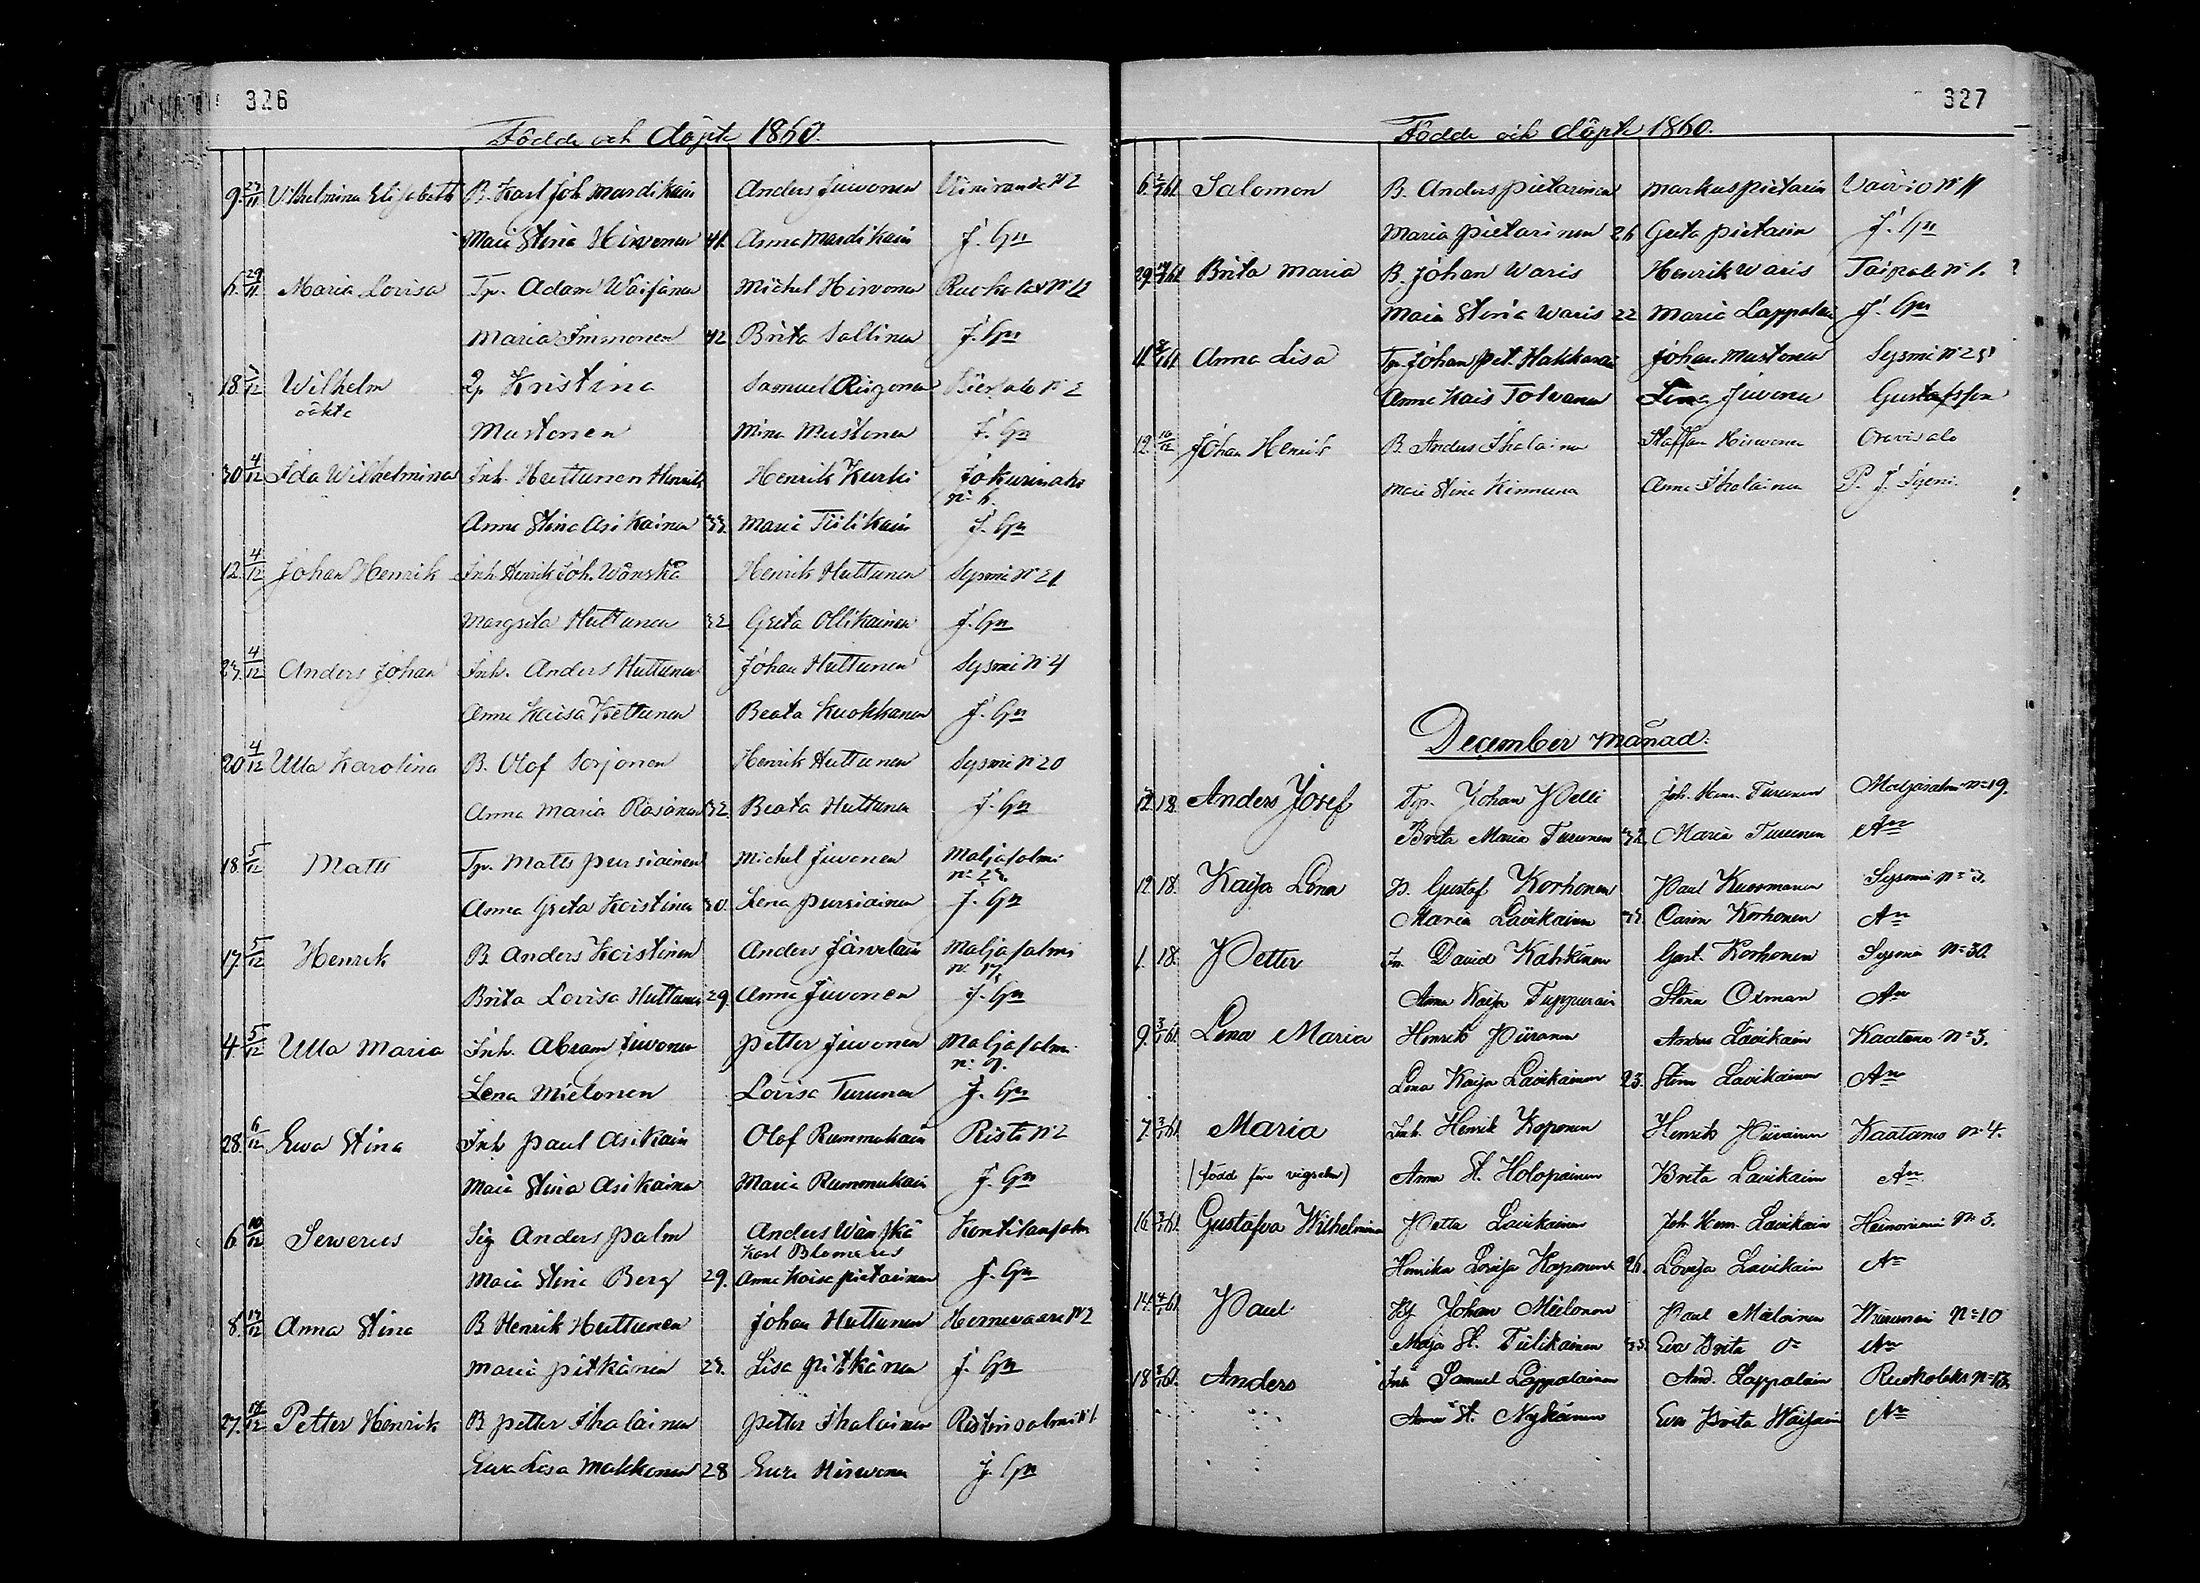 326
Födde och döpte 1860.
9. 27/11 Wilhelmina Elisabeth B. Karl Joh Mardikain Anders Juvonen N:2
Maria Stina Hirvonen 41. Anna Mardikain J. Gn
6. 29/11 Maria Lovisa Tp. Adam Wäisänen Michel Hirvonen N:12
Maria Immonen 42 Brita Sallinen J. Gn
18. Wilhelm Kristina Samuel N:2
oäkta
Mustonen Mina Mustonen J. Gn
30 4/12 Ida Wilhelmina Inh. Huttunen Henrik Henrik Kurki Jokurinaho
N: 6.
Anna Stina Asikainen 33. Maria Tiilikain J. Gn
12. 4/12 Johan Henrik Inh. Henrik Joh. Wänskä Henrik Huttunen Sysmä N:21
Margreta Huttunen 32 Greta Ollikainen J. Gn
23. 4/12 Anders Johan Inh. Anders Huttunen Johan Huttunen Sysmä N:4
Anna Kaisa Kettunen Beata Kuokkanen J. Gn
20 4/12 Ulla Karolina B. Olof Sorjonen Henrik Huttunen Sysmä N:20
Anna Maria Räsänen 32. Beata Huttunen J. Gn
18. 5/12 Matts Tp. Matts Pursiainen Michel Juvonen Maljasalmi
N: 23.
Anna Greta Koistinen 30. Lena Pursiainen J. Gn
17. 5/12 Henrik B. Anders Koistinen Anders Järvelain Maljasalmi
N: 17.
Brita Lovisa Huttunen 29. Anna Juvonen J. Gn
4. 5/12 Ulla Maria Inh. Abram Juvonen Petter Juvonen Maljasalmi
N: 9.
Lena Mielonen Lovisa Turunen J. Gn
28. 6/12 Ewa Stina Inh Paul Asikain Olof Rummukain Risti N:2
Maria Stina Asikainen Maria Rummukain J. Gn
6 10/12 Sewerus Anders Palm Anders Wänskä Kontilansalm
Karl Blomerus
Maria Stina Berg 29. Anna Kaisa Pietarinen J. Gn
8. 17/12 Anna Stina B Henrik Huttunen Johan Huttunen Hernevaara N:2
Maria Pitkänen 23. Lisa Pitkänen J. Gn
27. 17/12 Petter Henrik B Petter Ihalainen Petter Ihalainen Ristinsalmi N:1
Ewa Lisa Makkonen 28 Ewa Hirvonen J. Gn
327
Födde och döpte 1860.
6. Salomon B. Anders Pietarinen Markus Pietarin Vaivio N:11
Maria Pietarinen 26 Greta Pietarin J. Gn
29. Brita Maria B. Johan Waris Henrik Waris Taipale N:1. ?
Maria Stina Waris 22 Maria Lappalain J. Gn
11. Anna Lisa Tp. Johan Pet. Hakkarain Johan Mustonen Sysmä N:25
Anna Kais Tolvanen Lena Juvonen Gustafsson
19. 10/12 Johan Henrik B. Anders Ihalainen Staffan Hirvonen Oravisalo
Maria Stina Kinnunen Anna Ihalainen P. J. Tzeni.
December månad.
12. 18. Anders Josef Tp. Johan Pelli Joh. Henr. Turunen Maljasalm N=19.
Brita Maria Turunen 32. Maria Turunen An
12. 18. Kaisa Lena B. Gustaf Korhonen Paul Kuosmanen Sysmä N=3.
Maria Lavikainen 35. Carin Korhonen An
1. 18. Petter In. David Kähkönen Gust. Korhonen Sysmä N=30.
Anna Kaisa Tuppurain Stina Oxman An
9. 3/1 61. Lena Maria Henrik Piironen Anders Lavikain Kaatamo N=3.
Lena Kaisa Lavikainen 23. Stina Lavikainen An
7. 3/1 61. Maria Inh. Henrik Koponen Henrik Piironen Kaatamo N: 4.
(född före vigseln) Anna St. Holopainen Brita Lavikain An
16. 3/1 61. Gustafva Wilhelmina Petter Lavikainen Joh. Henr. Lavikain Heinoniemi N: 3.
Henrika Lovisa Koponen 26. Lovisa Lavikain An
14. 4/1 61. Paul Johan Mielonen Paul Mielonen N=10
Maja St. Tiilikainen 33. Eva Brita An
18 61. Anders Inh Samuel Lappalainen And. Lappalain N=13.
Anna St. Nykänen Eva Brita Wäisäin An